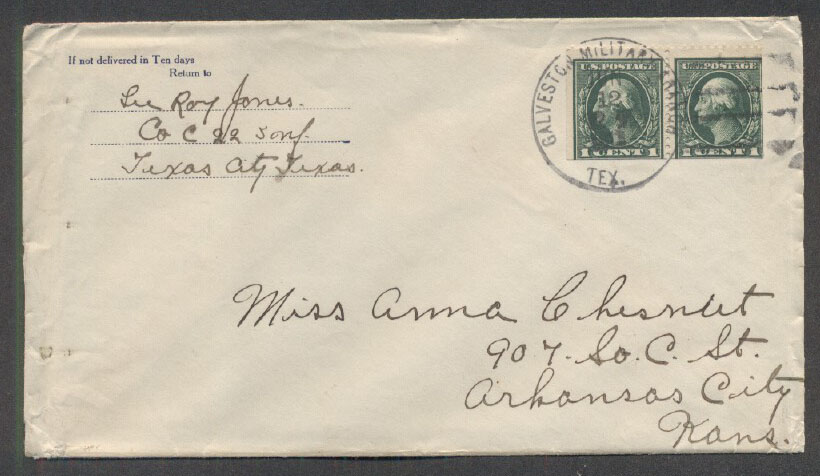 If not delivered in Ten days
Return to
Lee Roy Jones.
Co C 22 Inf.
Texas City Texas.
GALVESTON MILITARY BRANCH
12
TEX.
U.S. POSTAGE
1 CENT 1
U.S. POSTAGE
1 CENT 1
Miss Anna Chesnut
907. So. C. St.
Arkansas City
Kans.